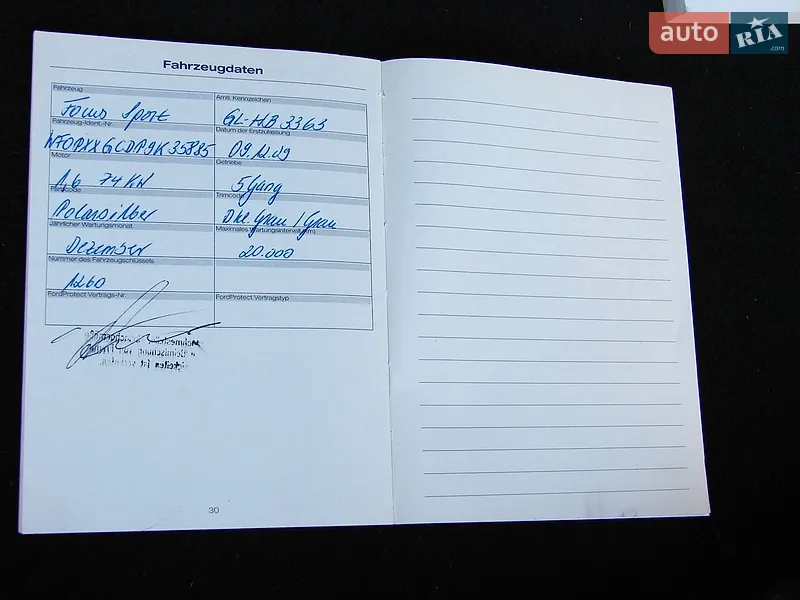 auto RIA .com
Fahrzeugdaten
Fahrzeug
Amtl. Kennzeichen
Focus Sport
GL-HB 3363
Fahrzeug-Ident.-Nr.
Datum der Erstzulassung
WF0PXXGCDP9K35885
09.12.09
Motor
Getriebe
1,6 74 KW
5 Gang
Farbcode
Trimcode
Polarsilber
Dkl. Grau / Grau
Jährlicher Wartungsmonat
Maximales Wartungsintervall (km)
Dezember
20.000
Nummer des Fahrzeugschlüssels
1260
FordProtect Vertrags-Nr.
FordProtect Vertragstyp
30